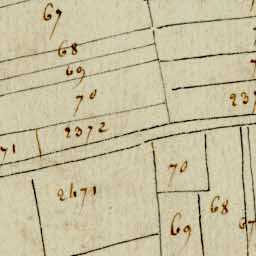 67
68
69
70
2372
71
70
2471
68
69